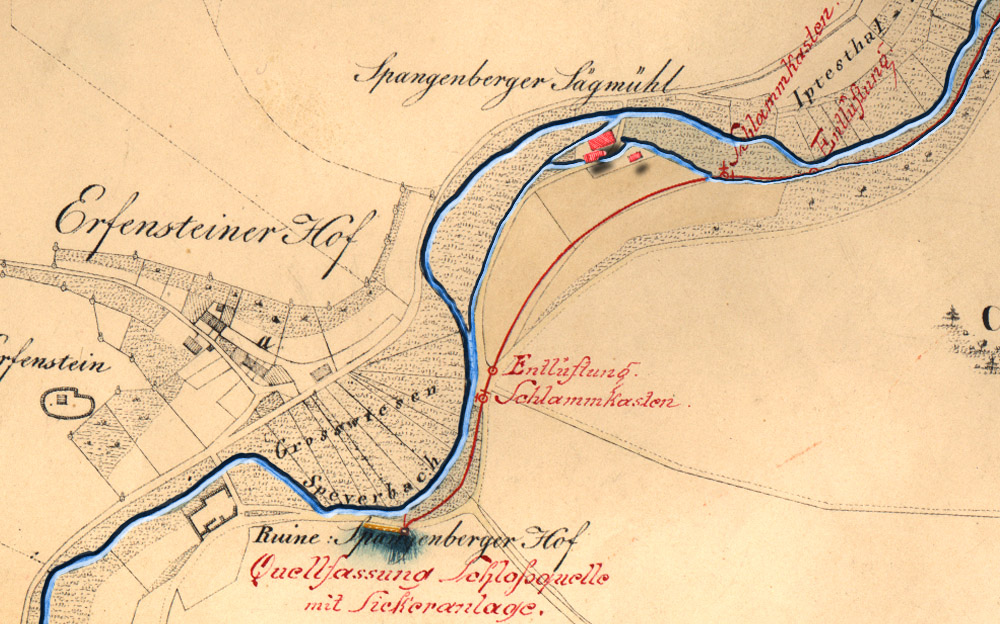 Spangenberger Sägmühl
Schlammkasten.
Iptesthal
Entlüftung
Erfensteiner Hof
a
rfenstein
Entlüftung.
Schlammkasten.
Grosswiesen
Speyerbach
Ruine: Spangenberger Hof
Quellfassung Schloßquelle
mit Sickeranlage.
C